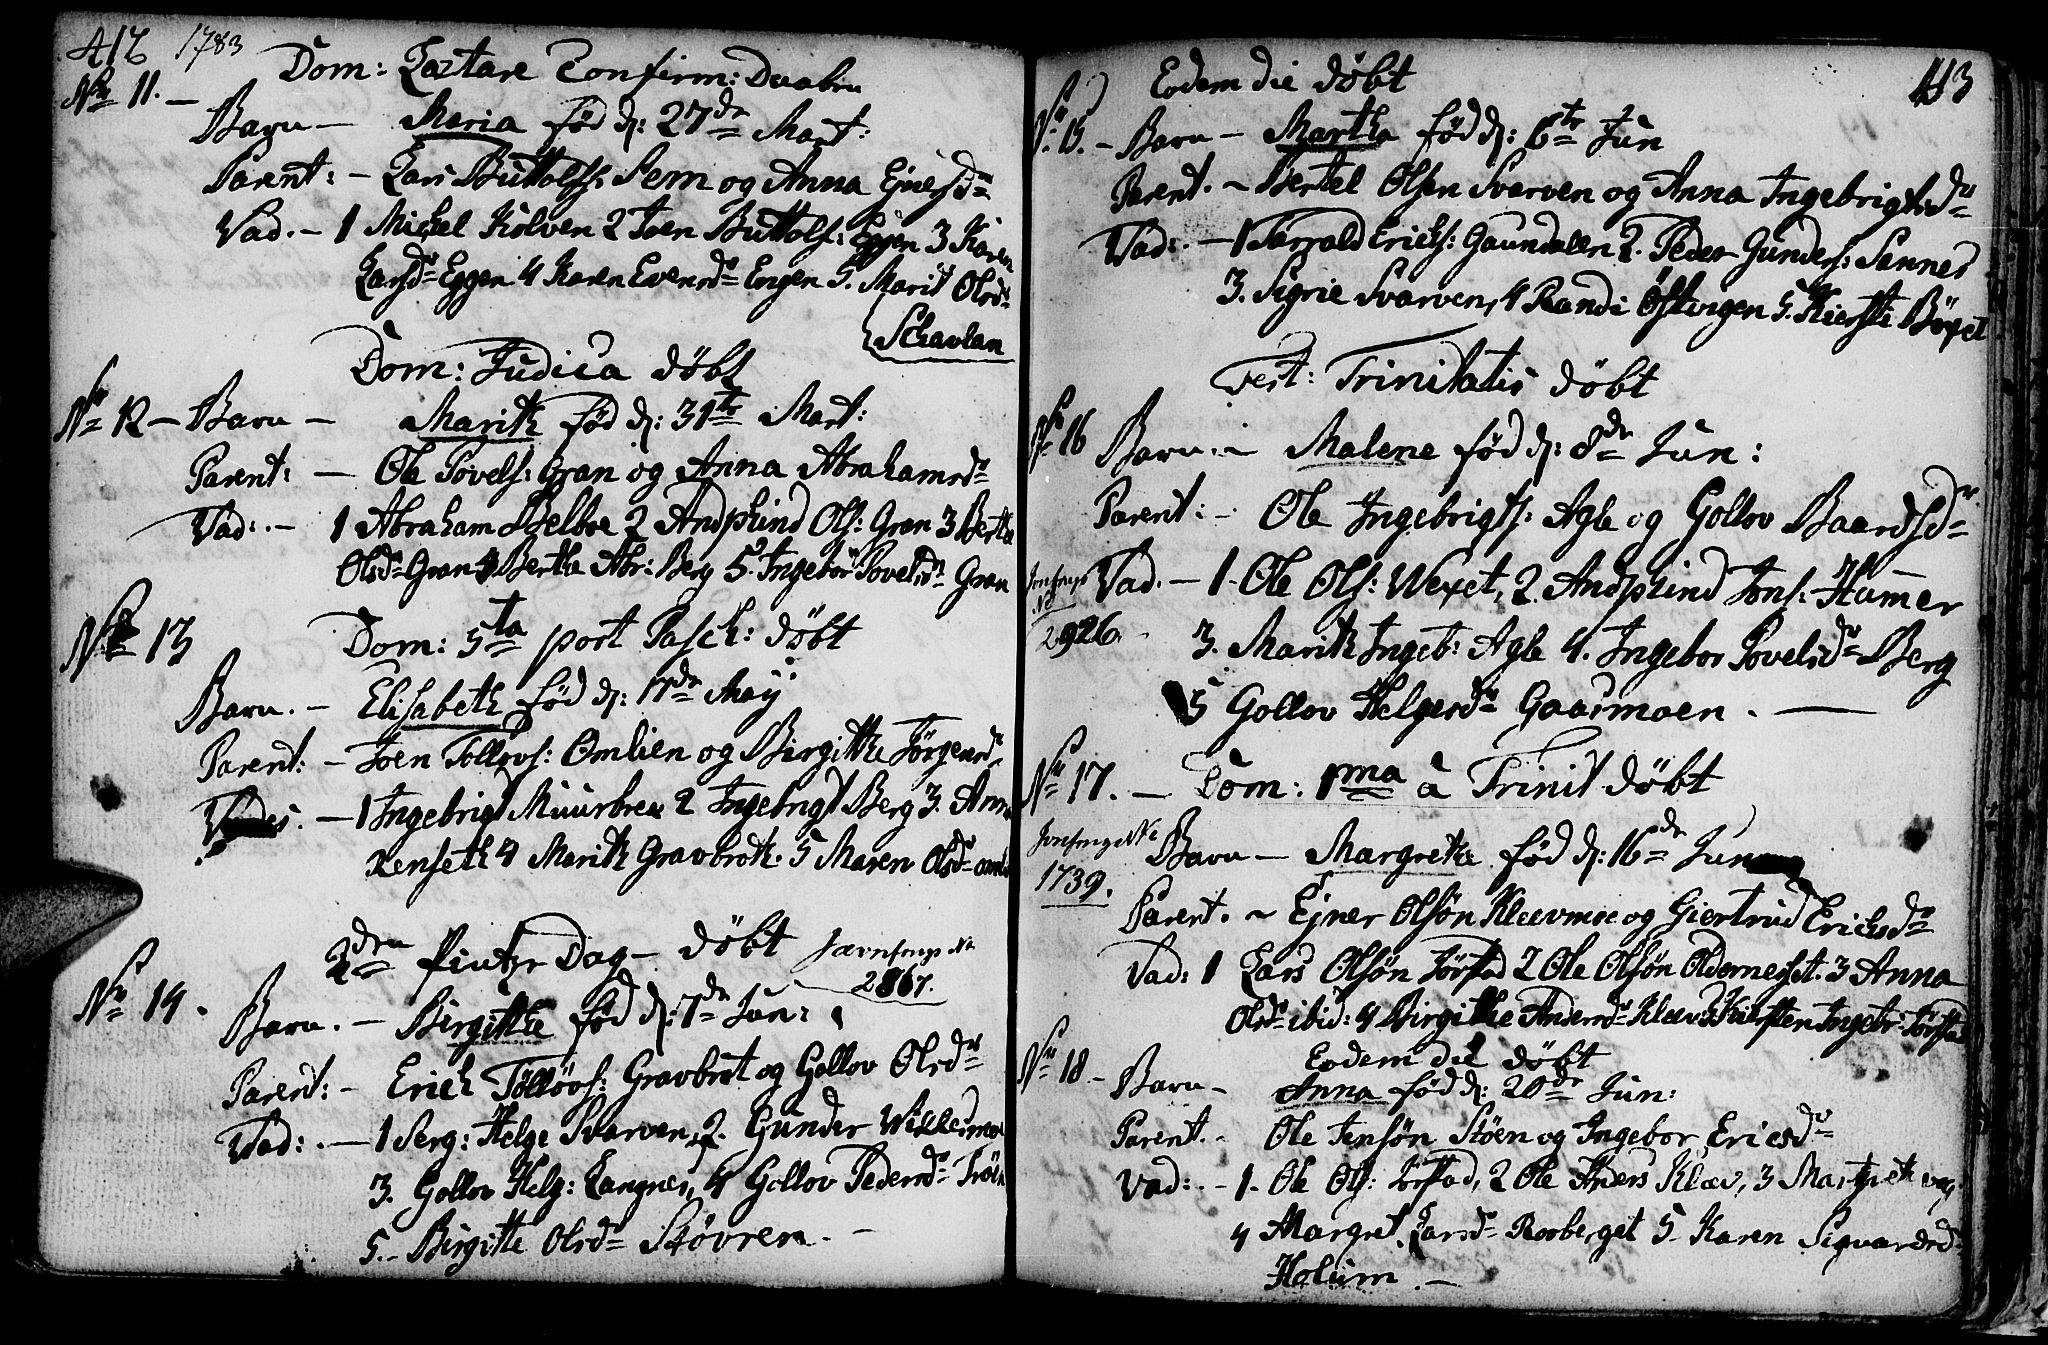 412 1783
Dom: Lætare Confirm: Daaben
No 11. —
Barn — Maria fød d: 27de Mart:
Parent: — Lars Buttolfs: Sem og Anna Ejnersdr
Vad. — 1 Michel Kolven 2 Joen Buttols: Eggen 3 Karen
Larsdr Eggen 4 Karen Evensdr Engen 5. Marit Olsdr
Schavlan
Dom: Judica døbt
No 12 — Barn — Marith fød d: 31te Mart:
Parent: — Ole Povels: Gran og Anna Abrahamsdr
Vad: — 1 Abraham Belboe 2 Andphind Ols: Gran 3 Berthe
Olsdr Gran 4 Berthe Abr: Berg 5. Ingebor Povelsdr Gran
No 13 Dom: 5ta post Pasch: døbt
Barn. — Elisabeth fød d: 17de May
Parent: — Joen Tollovs: Omlien og Birgitthe Jørgensdr
— 1 Ingebrigt Muurbrex 2 Ingebrigt Berg 3. Anne
Xenseth 4 Marith Gravbrot. 5 Maren Olsdr
2den Pintze Dag — døbt Jævnfrngs No
2867.
No 14.
Barn. — Birgitthe fød d: 7de Jun:
Parent: — Erich Tølløvs: Gravbrot og Gollov Olsdr
Vad: — 1 Serg: Helge Svarven, 2. Gunder
3. Gollov Helg: Langnes, 4 Gollov Pedersdr
5. — Birgitte Olsdr Støvren. —
413
Eodem die døbt
No 15. — Barn — Martha fød d: 6te Jun
Parent. ~ Bertel Olsen Svarven og Anna Ingebrigtsdr
Vad: — 1 Tarrald Erichs: Gaundalen 2. Peder Gunders: Sannes
3. Sigrie Svarven, 4 Randi Østvegen 5. Kierste
Fest: Trinitatis døbt
No 16 Barn. ~ Malene fød d: 8de Jun:
Parent: — Ole Ingebrigts: Agle og Gollov Baardsdr
Vad. — 1. Ole Ols: Wexet, 2. Andphind Jons: Hammer
2926.
3. Marith Ingeb: Agle 4. Ingebor Povelsdr Berg
5 Gollov Helgesdr Gaasmoen. —
No 17. — Dom: 1ma a Trinit døbt
Jvnfrngs No
1739.
Barn — Margrethe fød d: 16de Jun
Parent. ~ Ejner Olsøn Kleevmoe og Giertrud Erichsdr
Vad: 1 Lars Olsøn Jørstad 2 Ole Olsøn 3 Anna
Olsdr ibid: 4 Birgitthe Andersdr Kleev 5 Kiersten Ingebr: Jørstad
Eodem die døbt
No 18 — Barn — Anna fød d: 20de Jun:
Parent. — Ole Jensøn Støen og Ingebor Ericsdr
Vad: — 1. Ole Ols: Jørstad, 2 Ole Anders Klæv, 3 Margreth
4 Margret Larsdr Rosberget 5 Karen Sigvardsdr
Holum. —